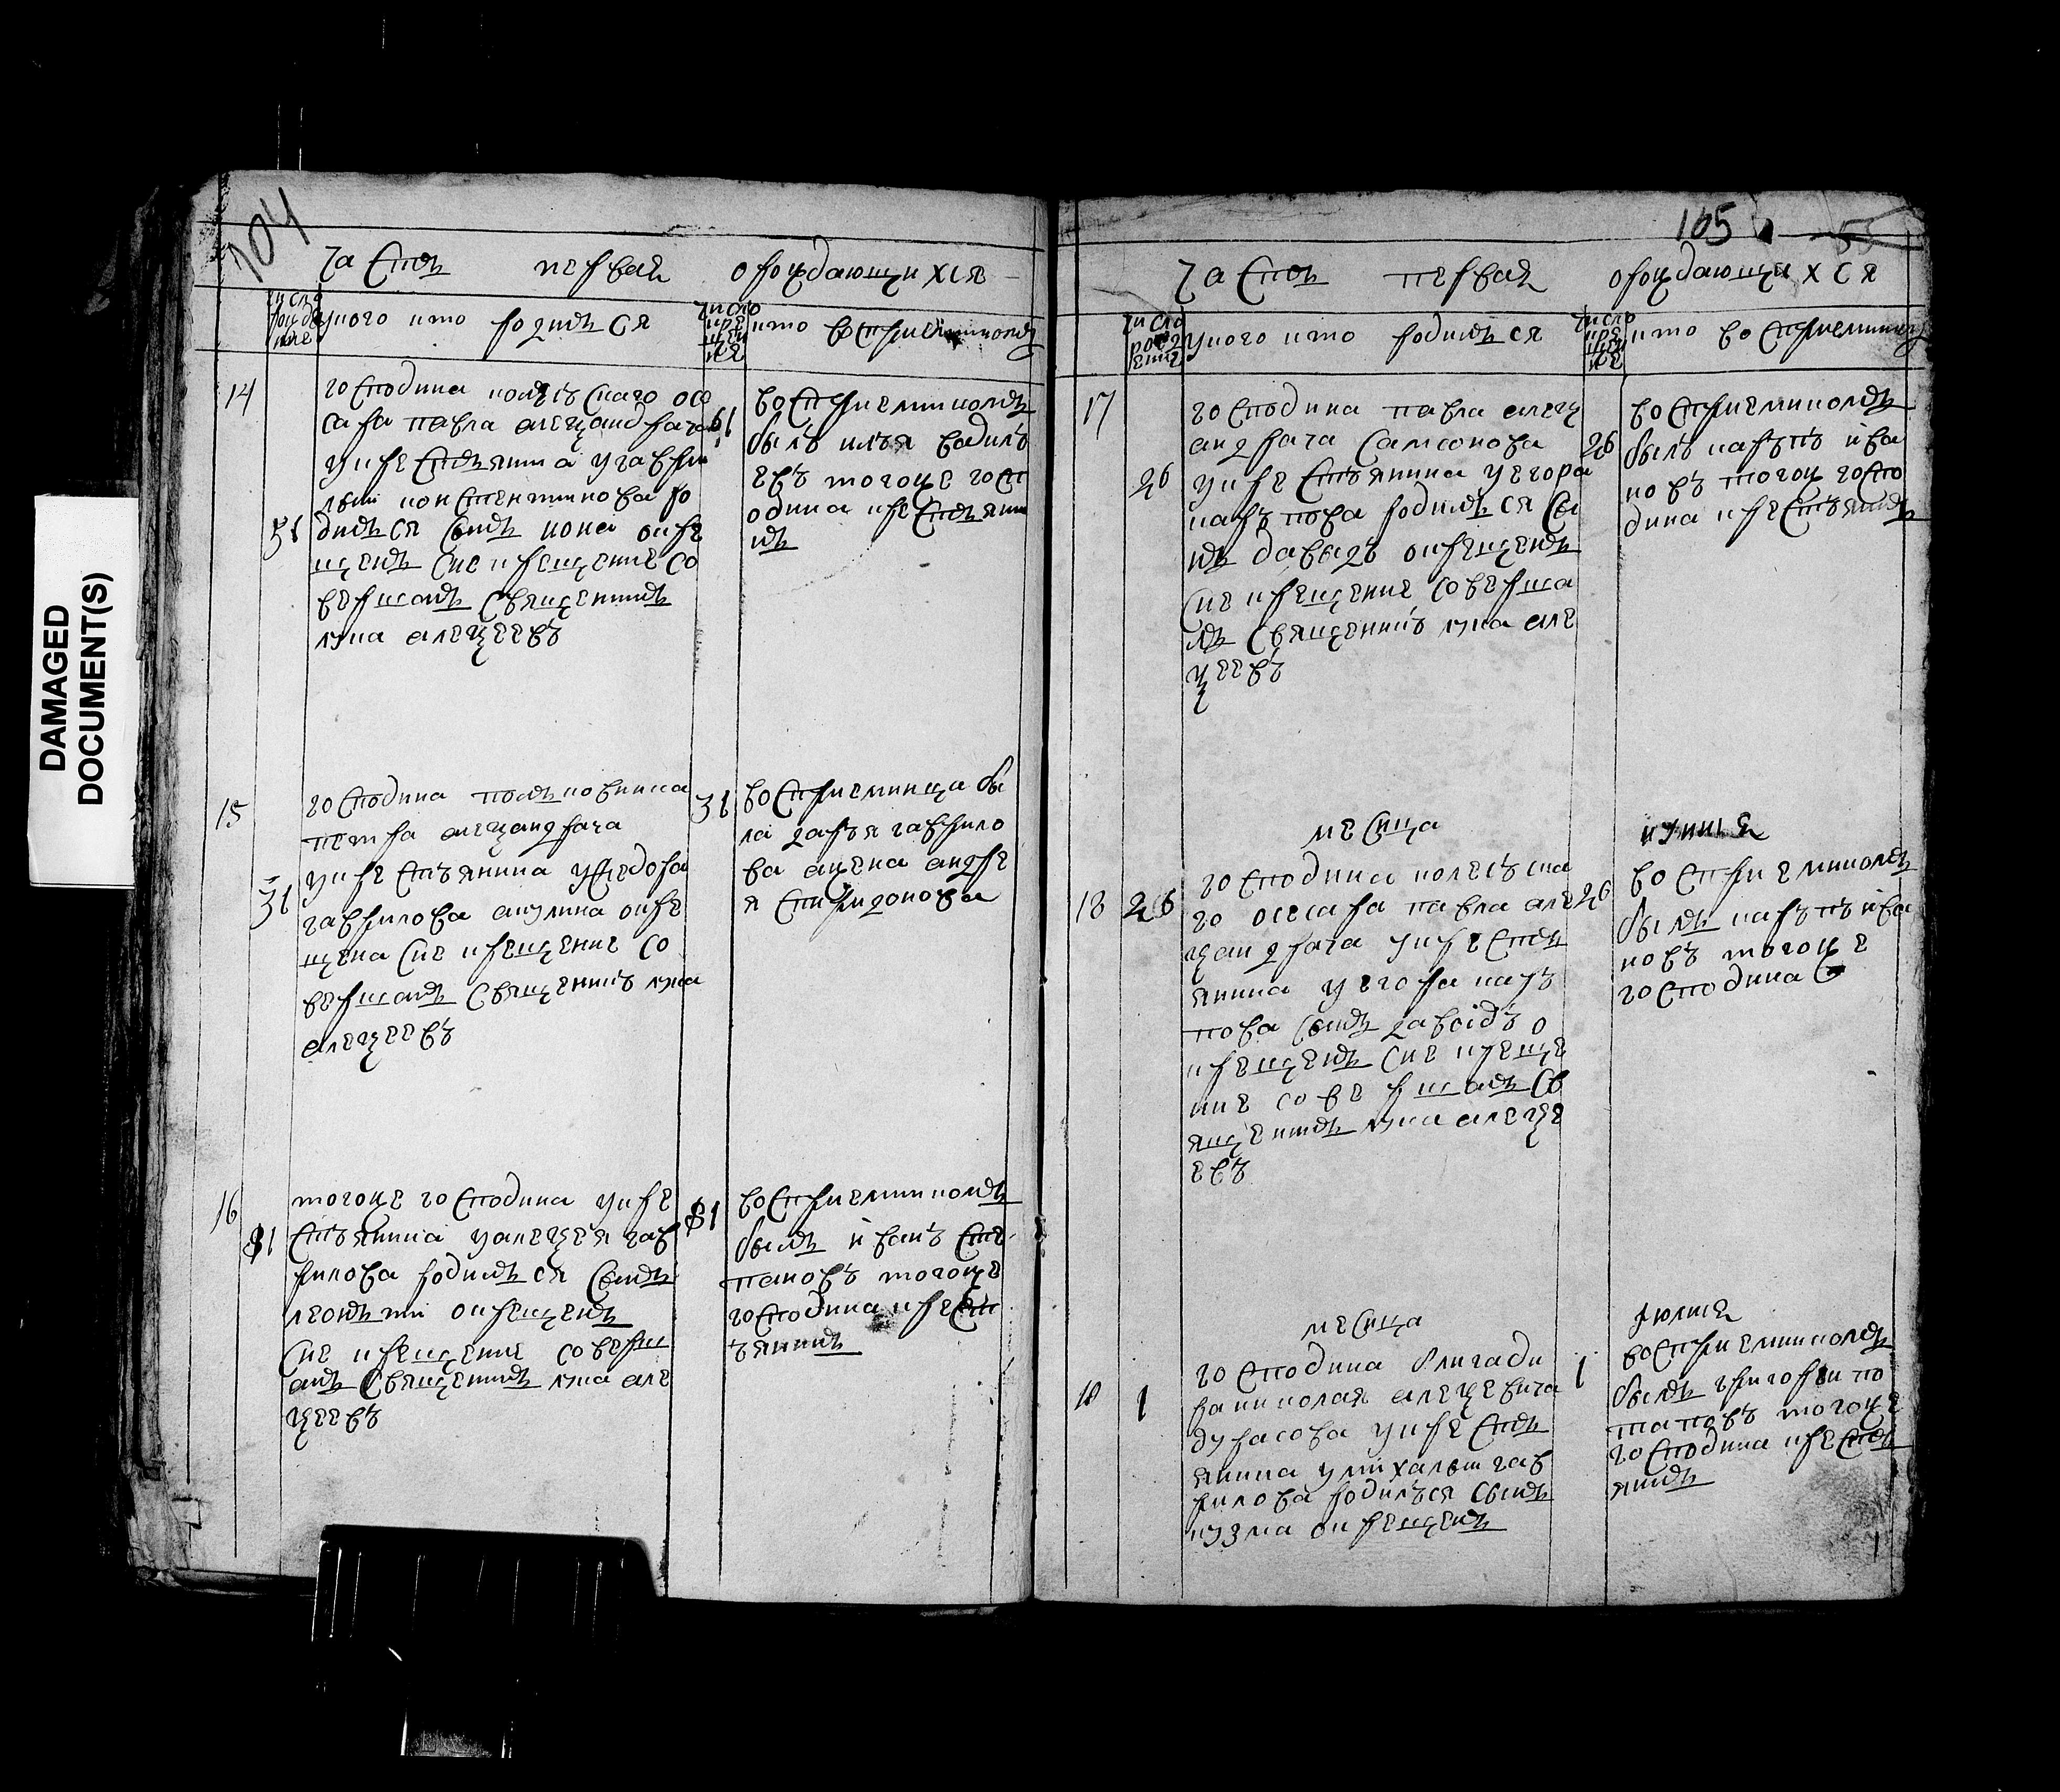 104
часть первая о рождающихся
число рожде ния
у кого кто родился
число кре щен ия
кто восприемником
14
господина колежскаго осе
сара павла александрача
у крестьянина у гаври
лы константинова ро
51
дился сынъ иона окре
щенъ сие крещение со
вершалъ священникъ
лука алексеевъ
61
восприемникомъ
былъ илья вавилъ
евъ тогоже госп
одина крестьяни
нъ
15
господина полковника
петра александрача
у крестьянина у федора
31
гаврилова акулина окре
щена сие крещение со
вершалъ священникъ лука
алексеевъ
31
восприемница бы
ла дарья гаврило
ва жена андре
я спиридонова
16
тогоже господина у кре
81
стьянина у алексея гав
рилова родился сынъ
леонтии окрещенъ
сие крещение соверш
алъ священникъ лука але
ксеевъ
81
восприемникомъ
былъ иванъ сте
пановъ тогоже
господина крест
ьянинъ
105
часть первая о рождающихся
число рожд ение
у кого кто родился
число кре щен ие
кто восприемнику
17
господина павла алекс
андрача самсонова
26
у крестьянина у егора
карпова родился сы
нъ давыдъ окрещенъ
сие крещение соверша
лъ священникъ лука але
ксеевъ
26
восприемникомъ
былъ карпъ ива
новъ тогож госпо
дина крестьянинъ
месица иуния
18
26
господина колежска
го осесара павла але
ксандрача у крестъ
янина у егора кар
пова сынъ давидъ о
крещенъ сие креще
ние совершалъ св
ященникъ лука алексе
евъ
26
восприемникомъ
былъ карпъ ива
новъ тогоже
господина
месица июлия
18
1
господина бригади
ра николая алексевича
дурасова у крестъ
янина у михаилы гав
рилова родился сынъ
кузма окрещенъ
1
восприемникомъ
былъ григори по
таповъ тогоже
господина кресть
янинъ
DAMAGED
DOCUMENT(S)